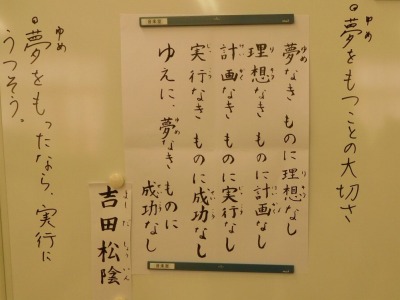 ・夢をもつことの大切さ
夢なき ものに理想なし
理想なき ものに計画なし
計画なき ものに実行なし
実行なき ものに成功なし
ゆえに、夢なき ものに
成功なし
吉田松陰
・夢をもったなら、実行に
うつそう。